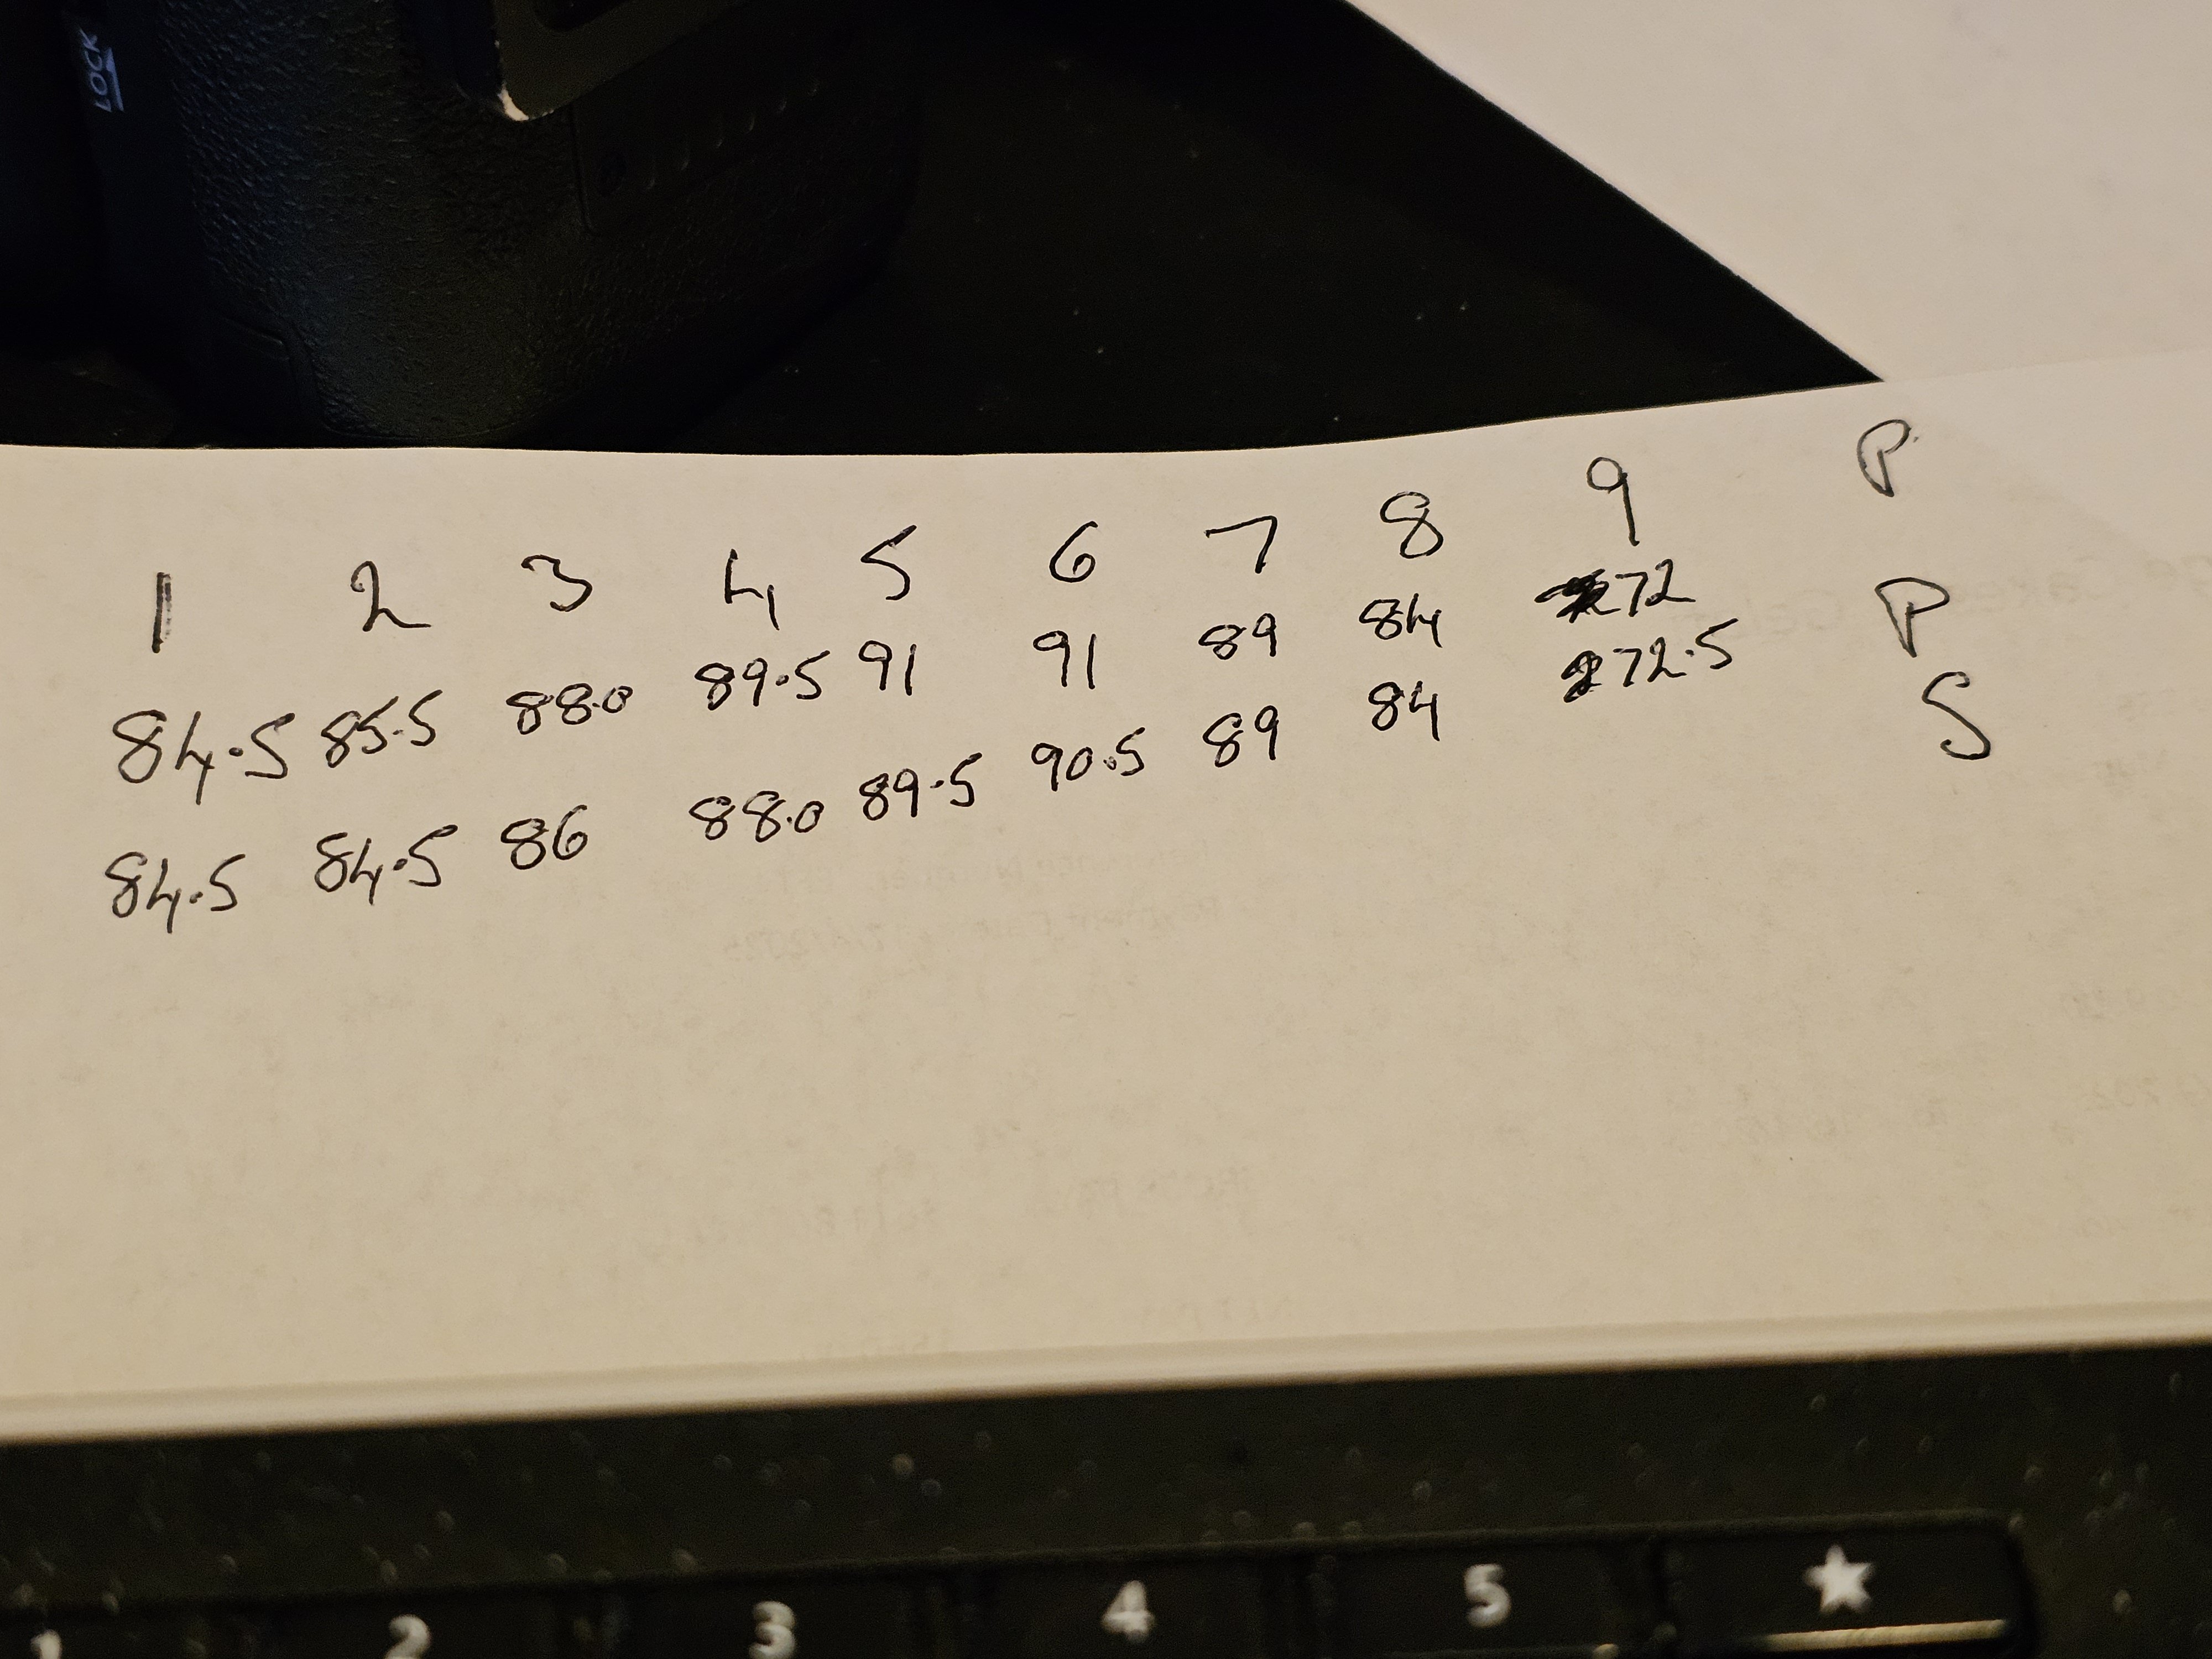 LOCK
1 2 3 4 5 6 7 8 9 P
84.5 85.5 88.0 89.5 91 91 89 84 272 P
84.5 84.5 86 88.0 89.5 90.5 89 84 272.5 S
1 2 3 4 5 ★